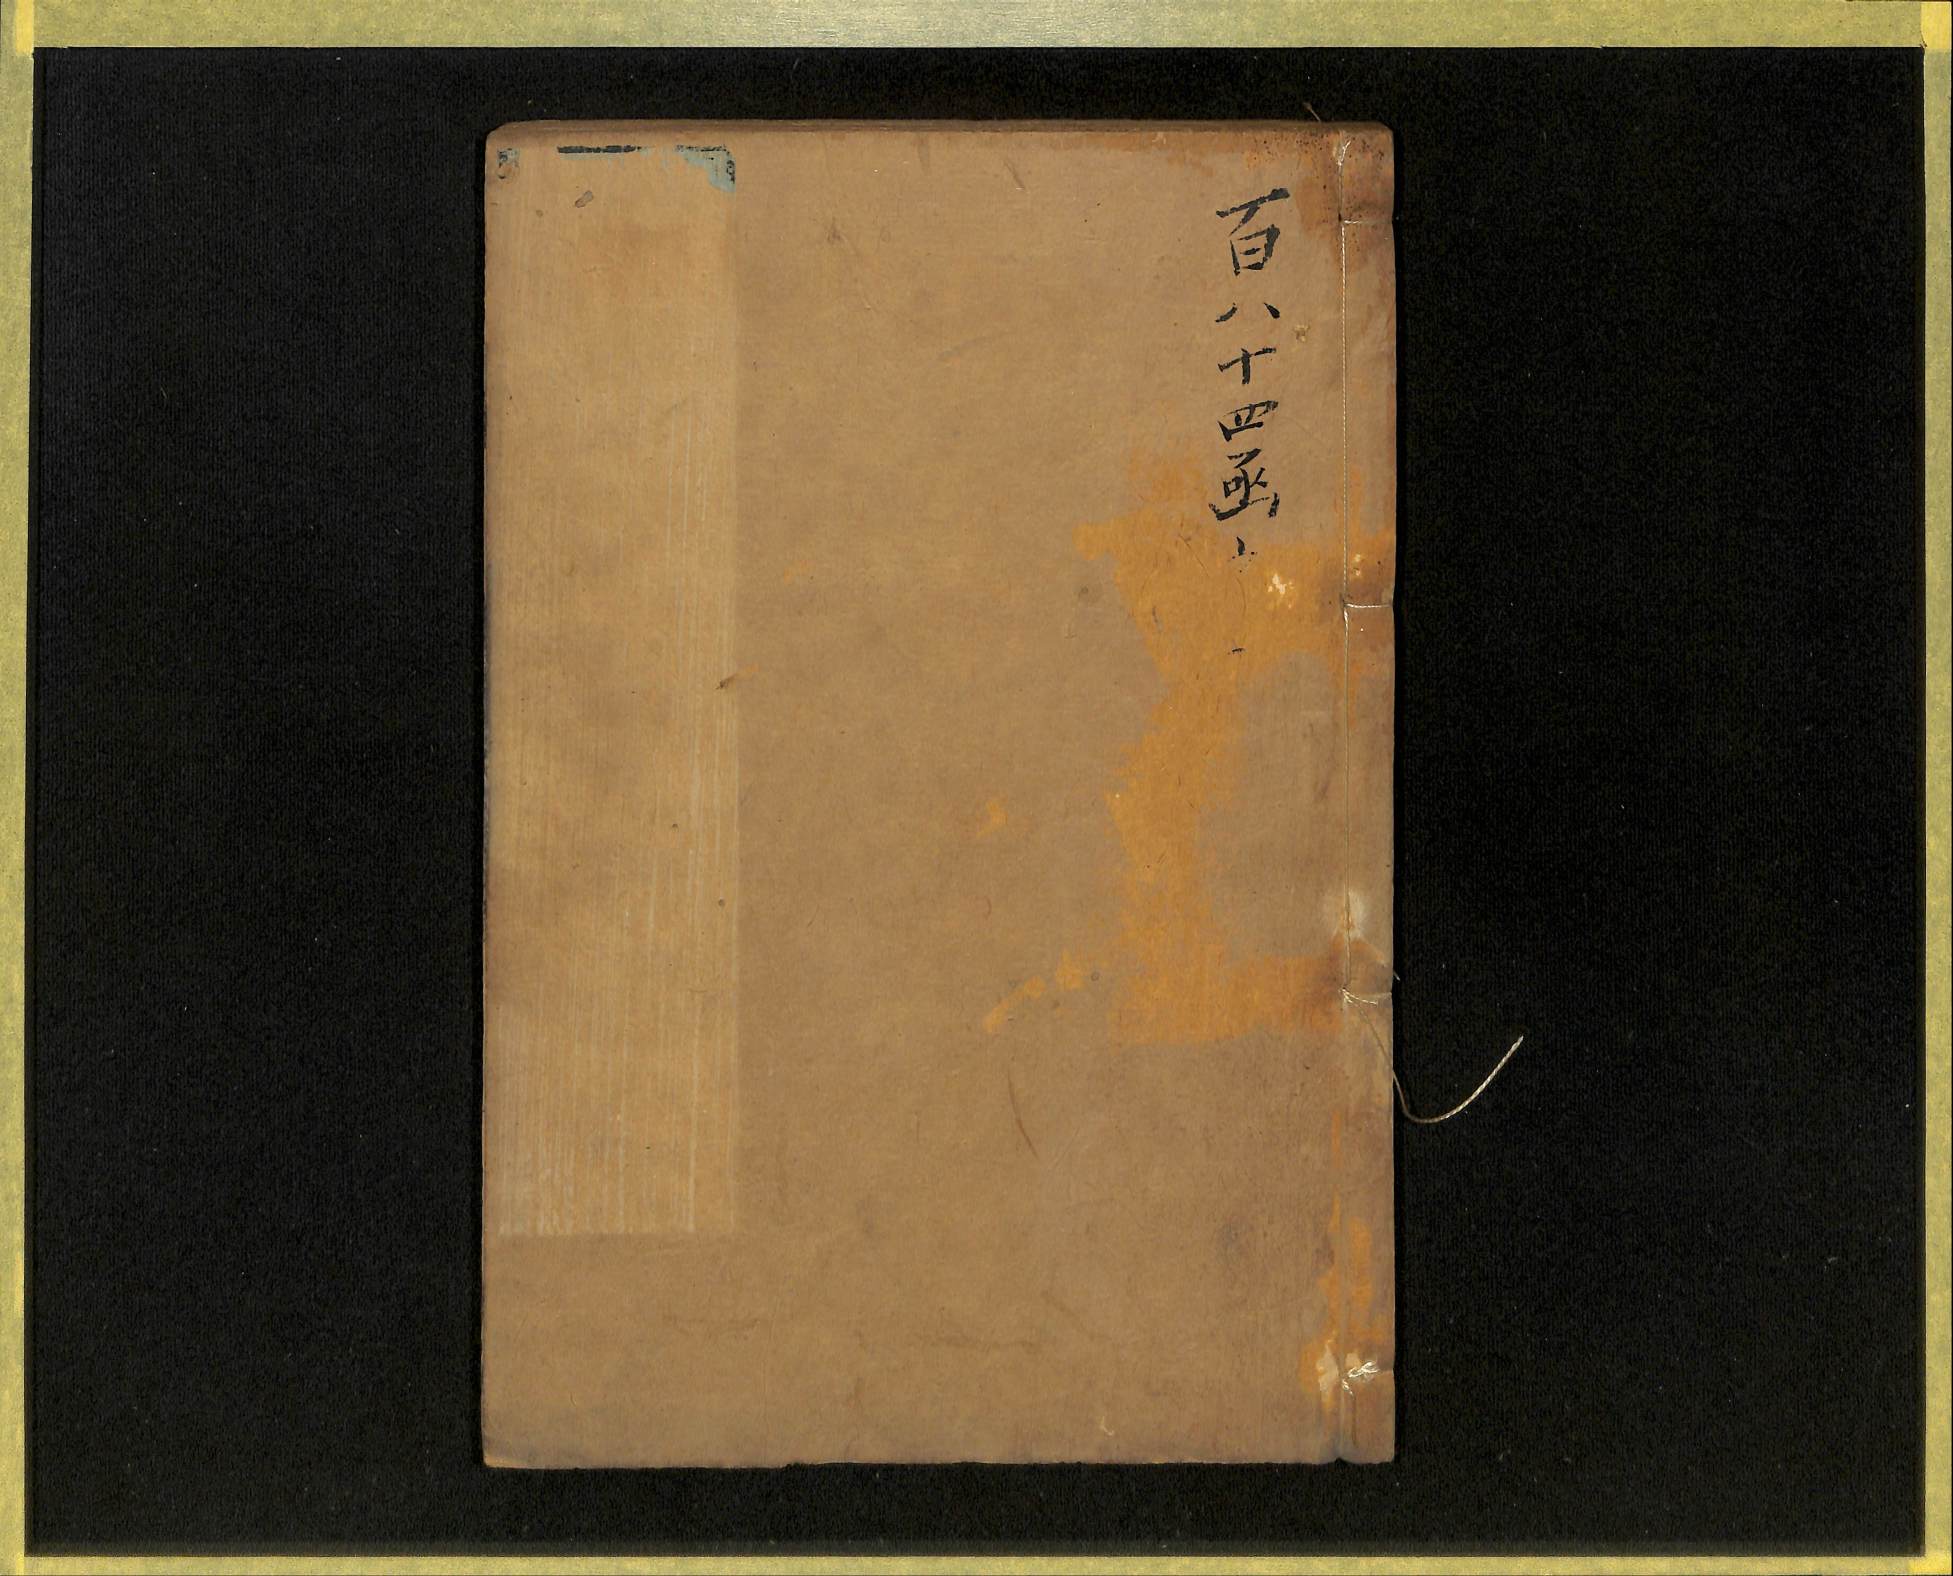 百八十四函